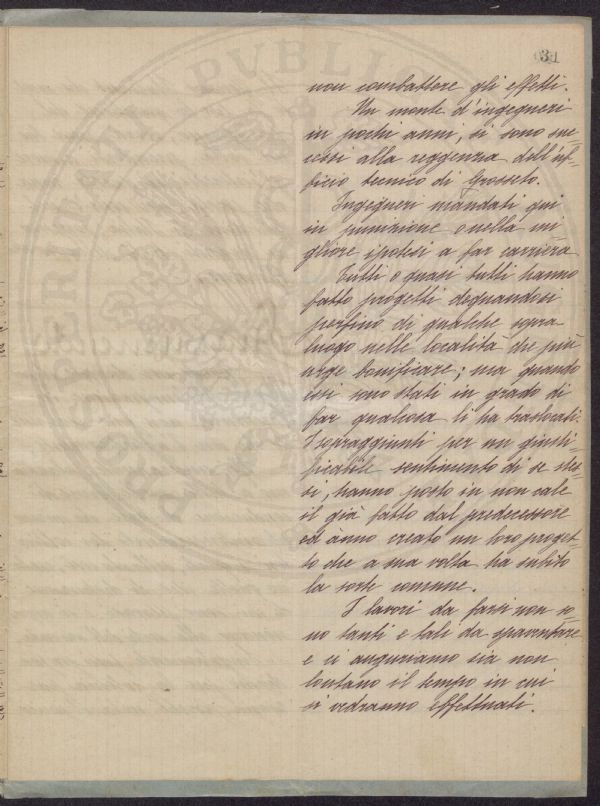 31
non combattere gli effetti.
Un monte d'ingegneri
in pochi anni, si sono suc=
cessi alla reggenza dell'uf=
ficio tecnico di Grosseto.
Ingegneri mandati qui
in punizione o nella mi=
gliore ipotesi a far carriera
Tutti o quasi tutti hanno
fatto progetti degnandosi
perfino di qualche sopra
luogo nelle località che più
urge bonificare; ma quando
essi sono stati in grado di
far qualcosa li ha traslocati.
I sopraggiunti per un giusti=
ficabile sentimento di se stes=
si, hanno posto in non cale
il già fatto dal predecessore
ed ànno creato un loro proget=
to che a sua volta ha subito
la sorte comune.
I lavori da farsi non so=
no tanti e tali da spaventare
e ci auguriamo sia non
lontano il tempo in cui
si vedranno effettuati.
PVBLIC